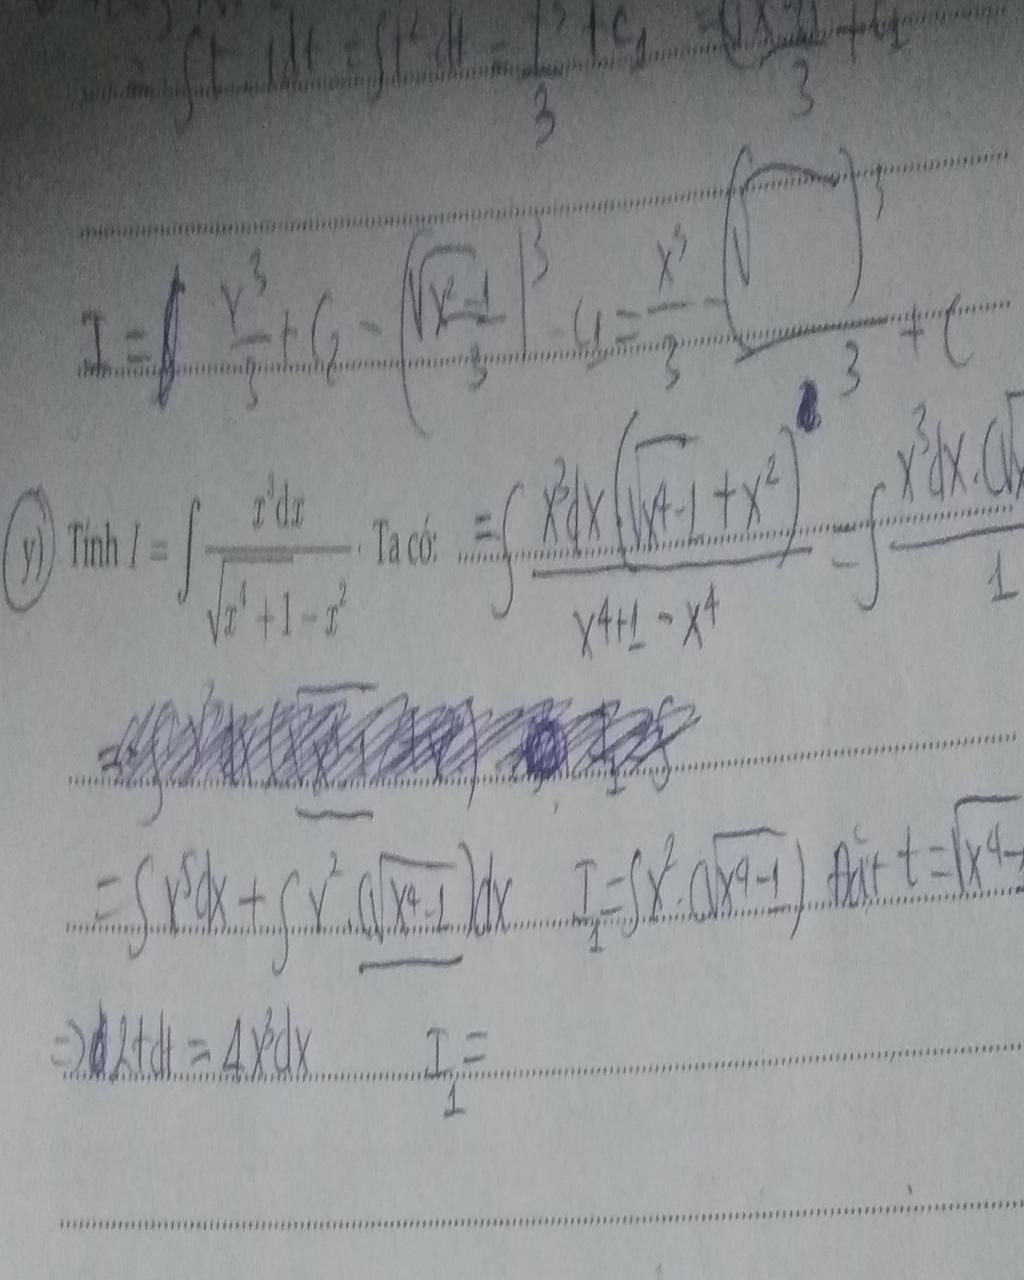 = ∫t · 1dt = ∫t² dt = t³/3 + C₁ = (√x²-1)³/3 + C₁
I = x³/3 + C₂ - (√x²-1)³/3 - C₁ = x³/3 - (√ )³/3 + C
y) Tính I = ∫ x³dx/(√x⁴+1 - x²). Ta có: = ∫ x³dx(√x⁴-1 + x²)/(x⁴+1 - x⁴) = ∫ x³dx.(√x/1
= ∫x⁵dx + ∫x².(√x⁴-1)dx I₁ = ∫x².(√x⁴-1) Đặt t = √x⁴-
=> 2tdt = 4x³dx I₁ =